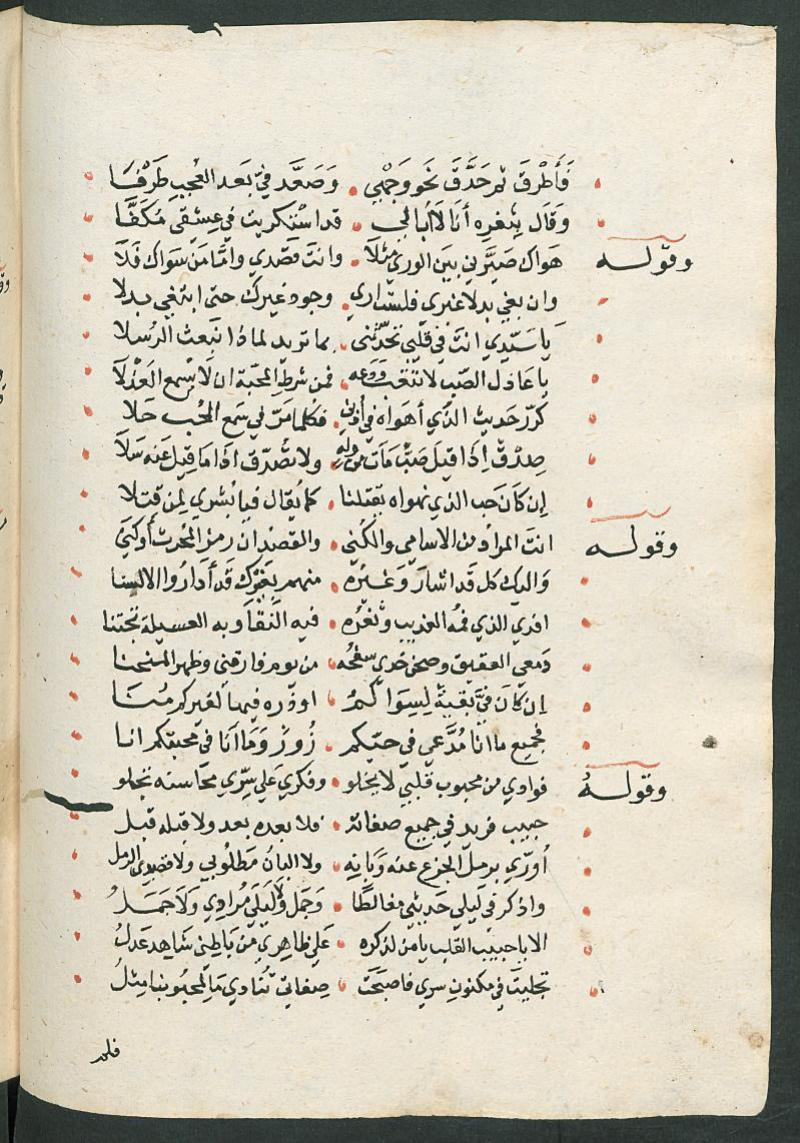 فَأَطْرَقَ ثم حَدَّقَ نَحو وَجْهِي وَصَعَّدَ فيَّ بَعد العُجب طَرْفَا
وَقَال بِثغرِه أنَا لَا أُبالي قد استكريت في عِشقي مُكَفَّا
وقوله هواك صَيَّرَني بين الورى مثلا وانت قصدي واما من سواك فلا
وان بغى بدلا غيري فلست ارى وجود غيرك حتى ابتغي بدلا
يا سيّدي انتَ في قلبي تحدّثني بما تريد لماذا تبعث الرسلا
يا عاذل الصبّ لا تتعب وَدَعه فمن شرط المحبّة ان لا يسمع العَذْلَا
كرّر حديث الذي أهواه في أذني فكلما مرّ في سمع المحب حَلا
صدّق إذا قيل صبّ مات من وله ولا تصدّق اذا ما قيل عنه سَلَا
إن كان حب الذي نهواه يقتلنا كما يُقال فيا بُشرى لمن قتلا
وقوله انت المراد من الاسامي والكنى والقصد ان رمز المحدث أو كنى
وَاليك كل قد اشار وَغيره منهم بغيرك قد أداروا الالسنا
افدي الذي فمه العذيب وثغره فيه النَّقا وبه العسيلة تجتنا
دَمعي العقيق وصحن خدي سفحه من يوم فارقني وظهر المنحنا
إن كان فيَّ بقية لِسِوَاكمُ
فجميع ما انا مُدَّعي في حبّكم زُورٌ وَمَا أنَا في محبتكم انا
وقوله فوادي من محبوب قلبي لا يخلو وفكري على سرّي محاسنه تجلو
حبيب فريد في جميع صفاته فلا بعده بعد ولا قبله قبل
أورّي برمل الجزع عنه وبانه ولا البان مَطلوبي ولا قصدي الرمل
واذكر في ليلى حديثي مغالطًا وَجمل وليلى مُرادي وَلَا جَمَلُ
الا يا حبيب القلب يا من لذكره على ظاهري من باطني شاهد عَدلُ
تجليتَ في مكنون سري فاصبحَت صفاتي تُنادي ما لمحبوبنا مِثلُ
فلمـ